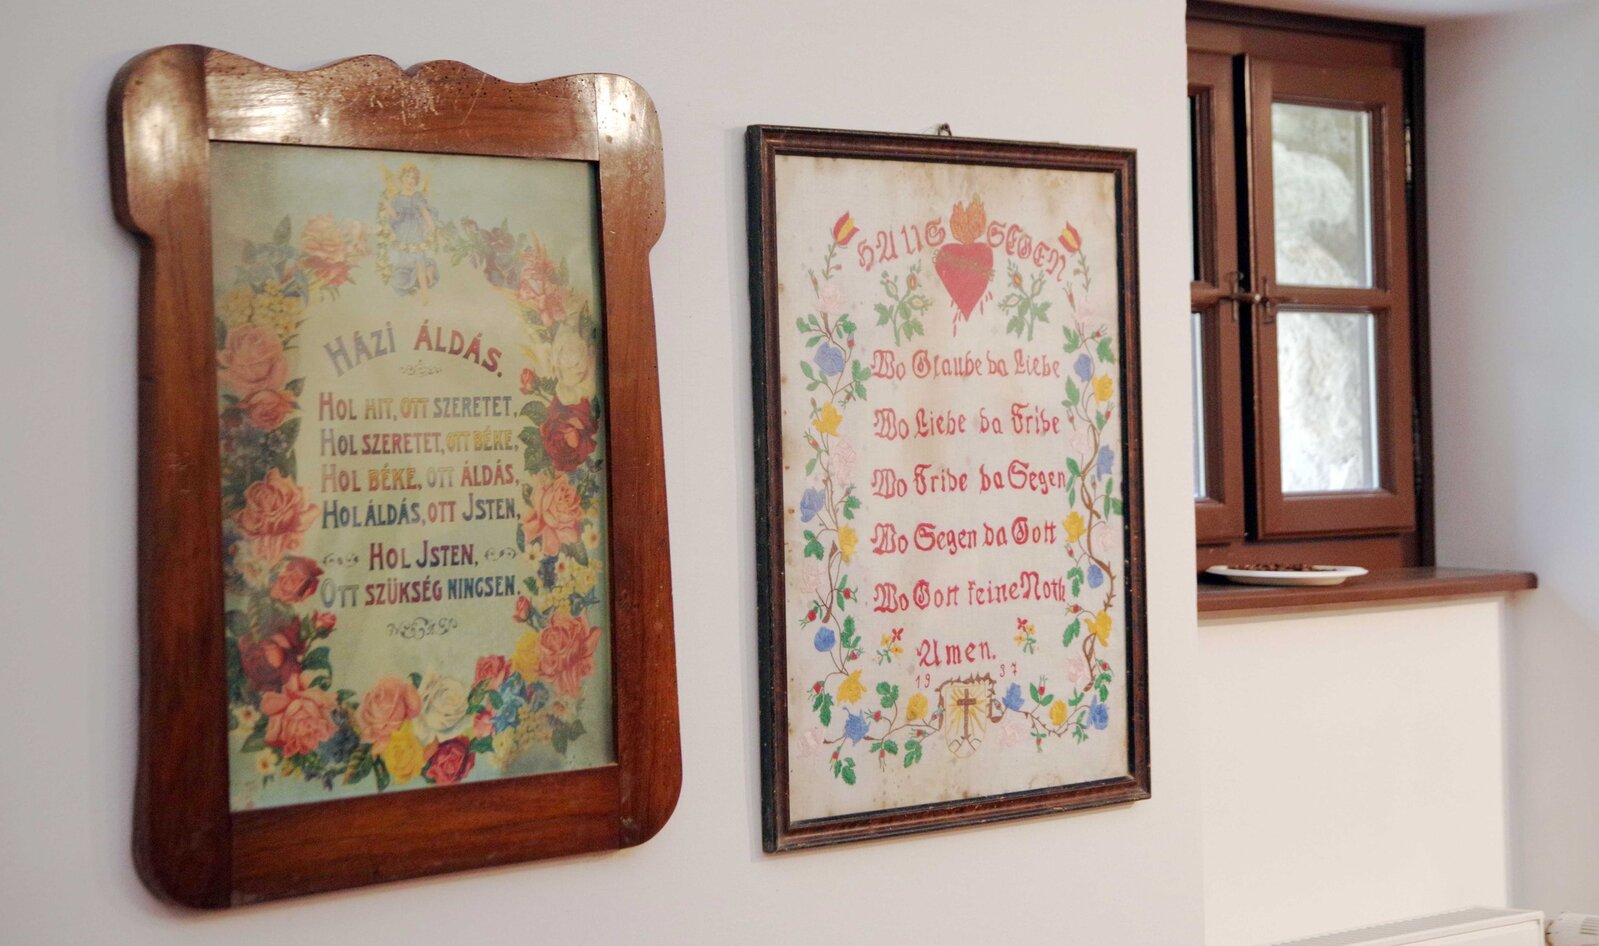 HÁZI ÁLDÁS.
HOL HIT, OTT SZERETET,
HOL SZERETET, OTT BÉKE,
HOL BÉKE, OTT ÁLDÁS,
HOL ÁLDÁS, OTT JSTEN,
HOL JSTEN,
OTT SZÜKSÉG NINCSEN.
HAUS SEGEN
Wo Glaube da Liebe
Wo Liebe da Fribe
Wo Fride da Segen
Wo Segen da Gott
Wo Gott keine Noth
Amen.
19 37